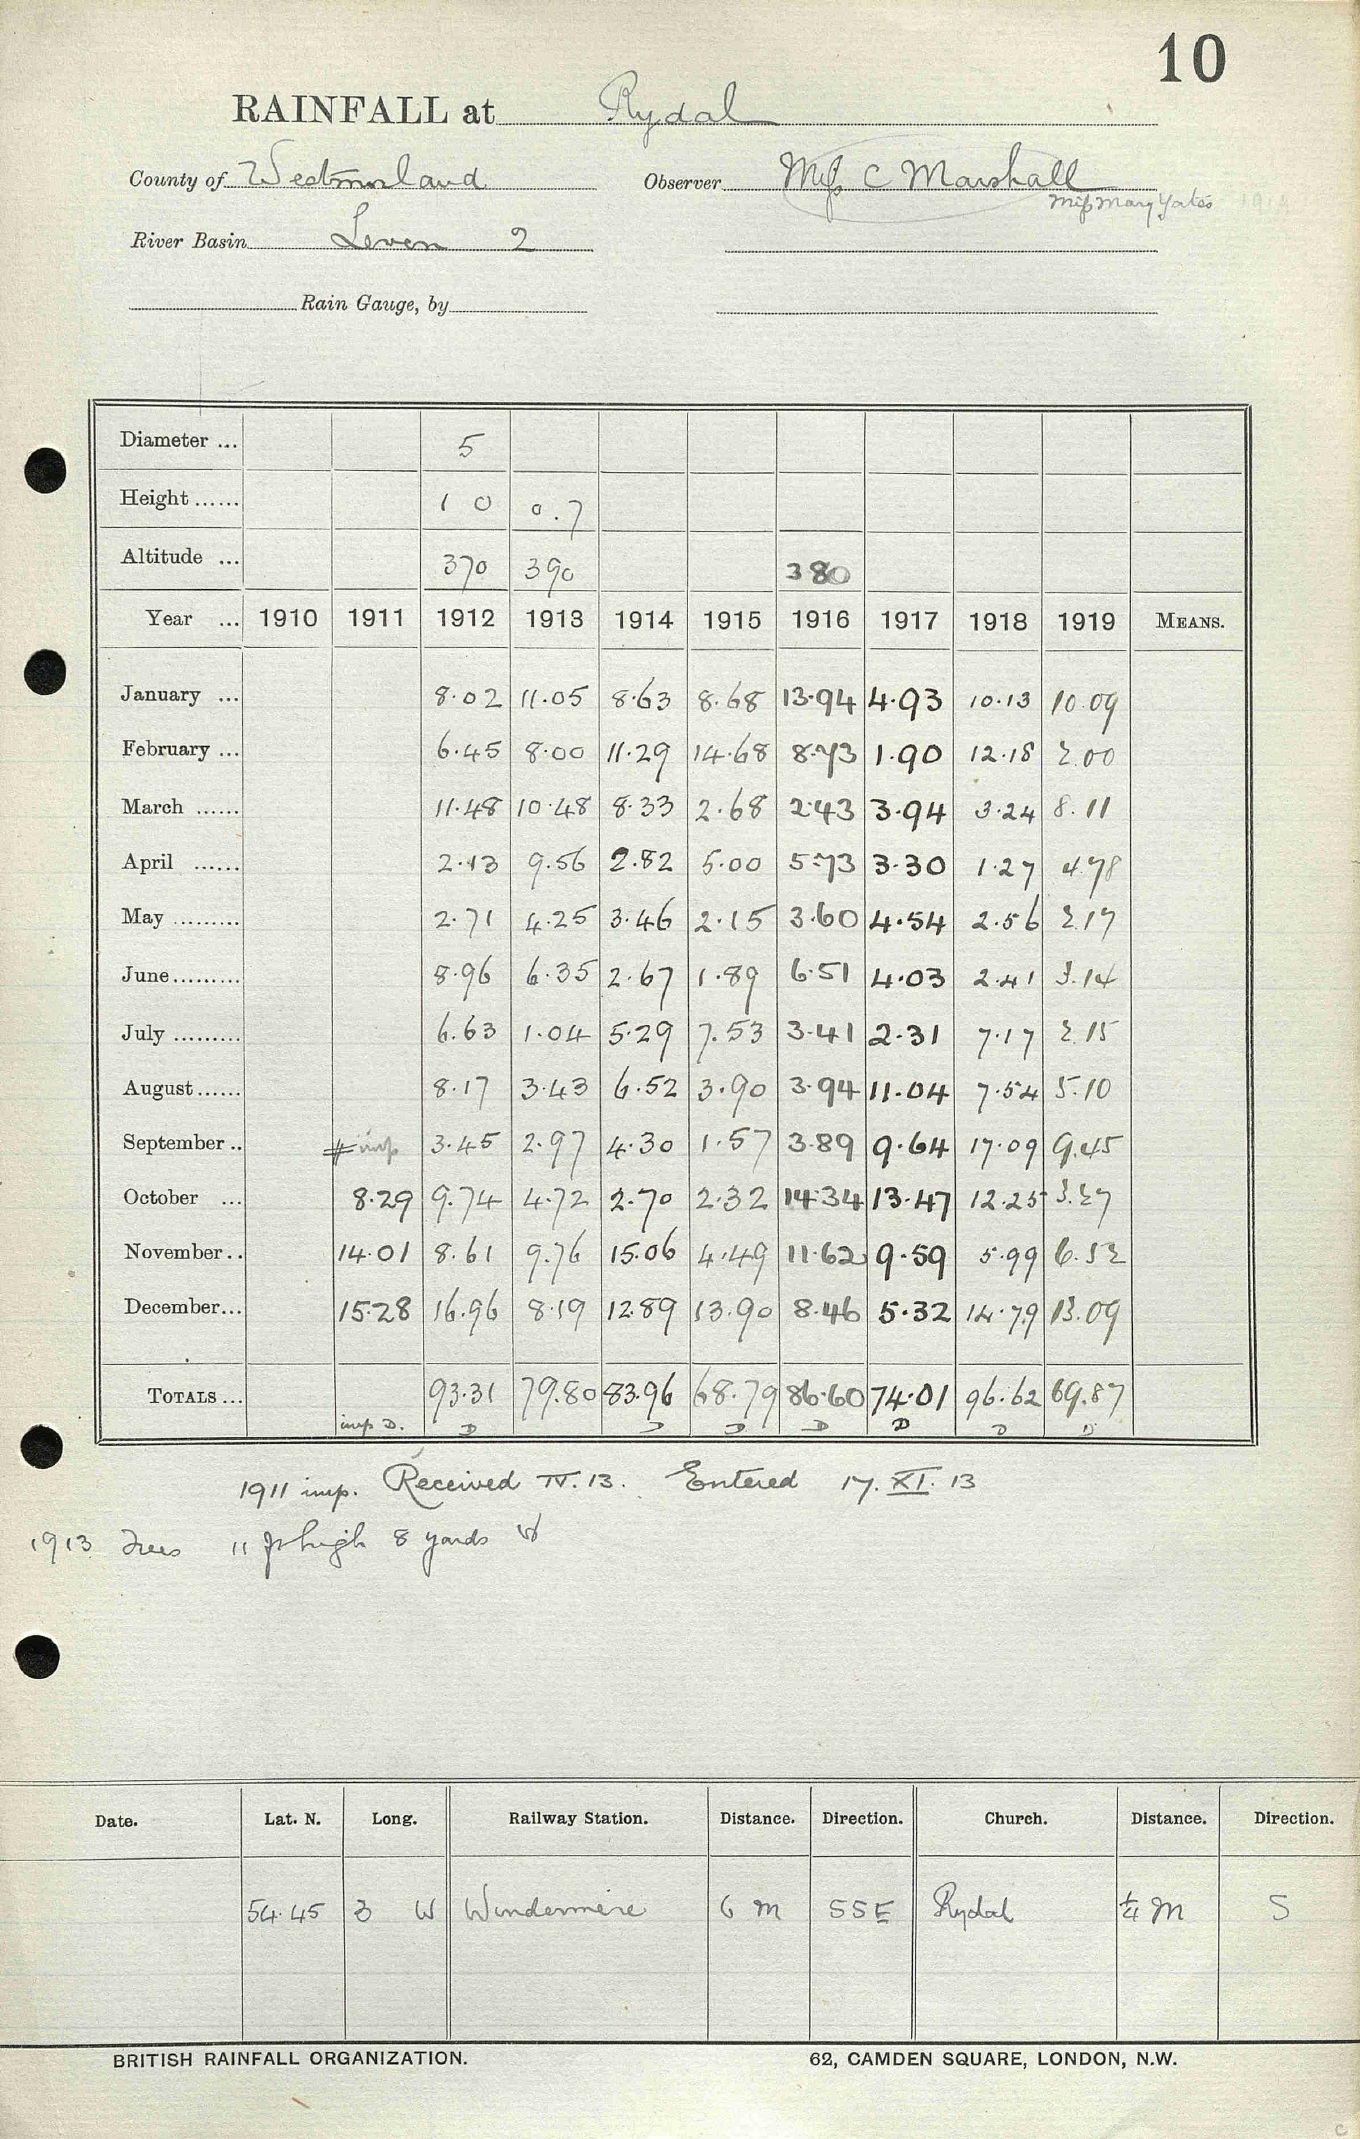 10
RAINFALL at Rydal
County of Westmorland Observer Miss C Marshall
Miss Mary Yates
River Basin Leven 2
Rain Gauge, by
Diameter ... 5
Height ...... 1 0 0.7
Altitude ... 370 390 380
Year ... 1910 1911 1912 1913 1914 1915 1916 1917 1918 1919 MEANS.
January ... 8.02 11.05 8.63 8.68 13.94 4.93 10.13 10.09
February ... 6.45 8.00 11.29 14.68 8.73 1.90 12.18 2.00
March ...... 11.48 10.48 8.33 2.68 2.43 3.94 3.24 8.11
April ...... 2.13 9.56 2.82 5.00 5.73 3.30 1.27 4.78
May ......... 2.71 4.25 3.46 2.15 3.60 4.54 2.56 2.17
June......... 8.96 6.35 2.67 1.89 6.51 4.03 2.41 3.14
July ......... 6.63 1.04 5.29 7.53 3.41 2.31 7.17 2.15
August...... 8.17 3.43 6.52 3.90 3.94 11.04 7.54 5.10
September .. # imp 3.45 2.97 4.30 1.57 3.89 9.64 17.09 9.45
October ... 8.29 9.74 4.72 2.70 2.32 14.34 13.47 12.25 3.27
November.. 14.01 8.61 9.76 15.06 4.49 11.62 9.59 5.99 6.52
December... 15.28 16.96 8.19 12.89 13.90 8.46 5.32 14.79 13.09
TOTALS ... 93.31 79.80 83.96 68.79 86.60 74.01 96.62 69.87
imp D. D D D D D D D
1911 imp. Received IV.13. Entered 17.XI.13
1913 Trees 11 ft high 8 yards W
Date. Lat. N. Long. Railway Station. Distance. Direction. Church. Distance. Direction.
54.45 3 W Windermere 6 m SSE Rydal ¼ m S
BRITISH RAINFALL ORGANIZATION. 62, CAMDEN SQUARE, LONDON, N.W.